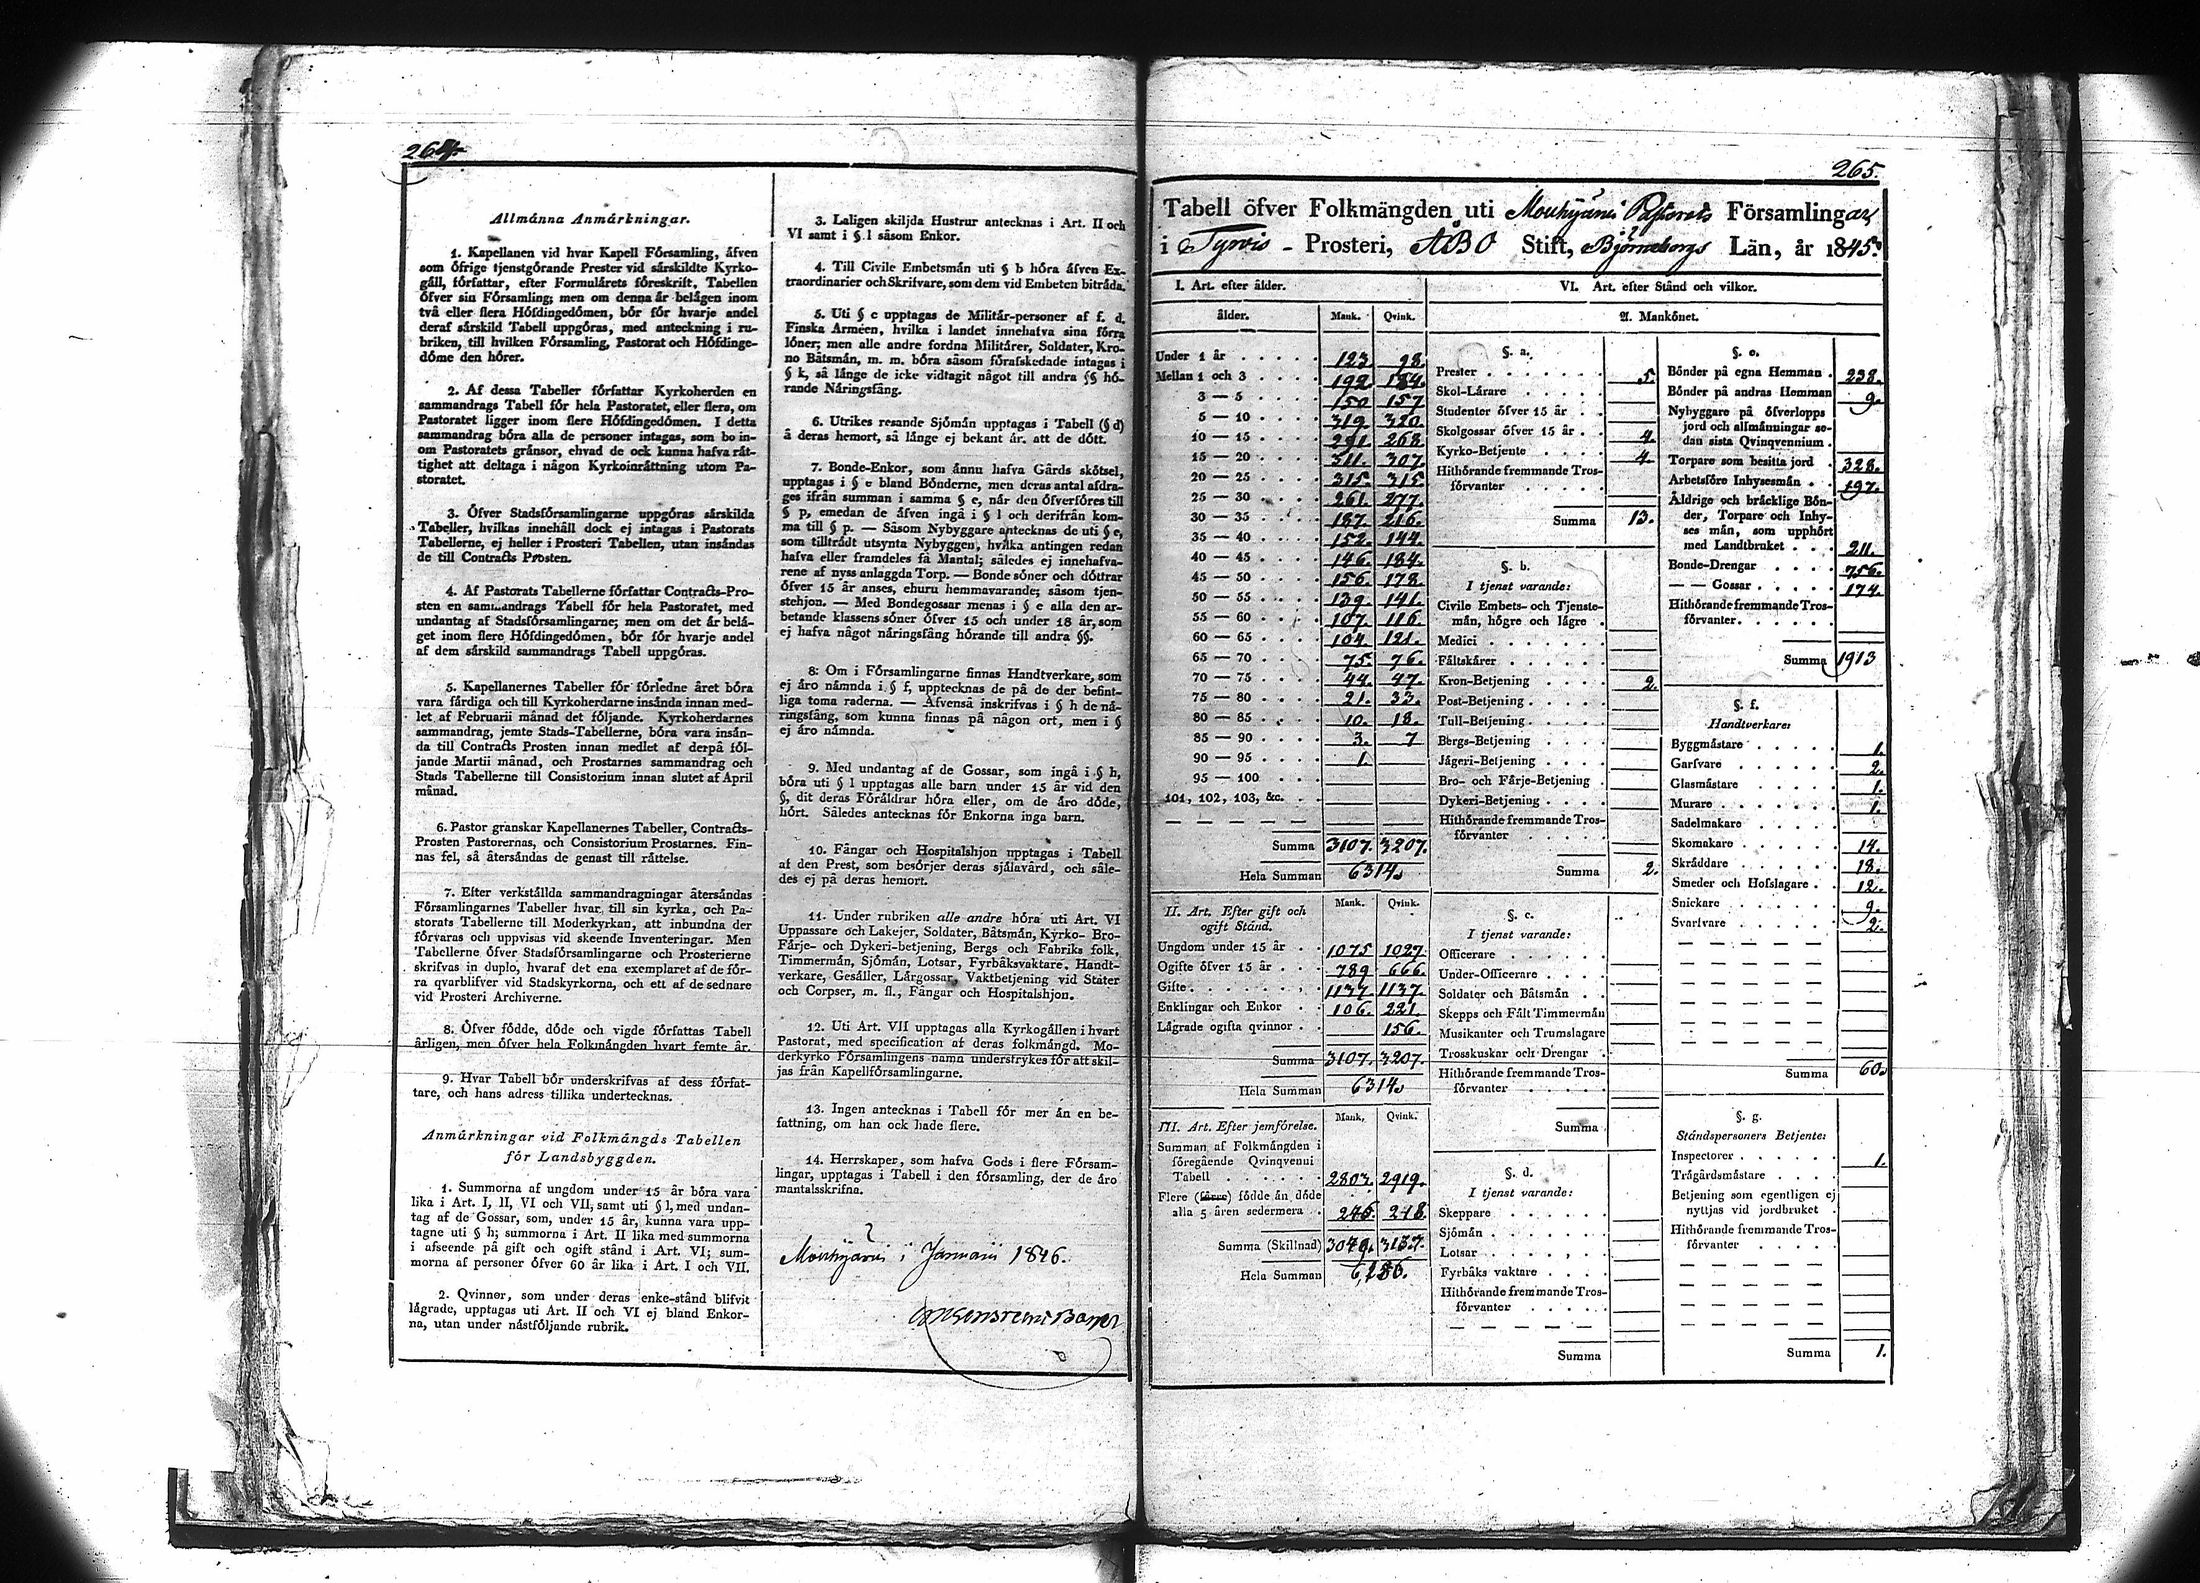 264.
Allmånna Anmårkningar.
1. Kapellanen vid hvar Kapell Fórsamling, åfven
som ófrige tjenstgórande Prester vid sårskildte Kyrko-
gåll, fórfattar, efter Formulårets fóreskrift, Tabellen
ófver sin Fórsamling; men om denna år belågen inom
två eller flera Hófdingedómen, bór fór hvarje andel
deraf sårskild Tabell uppgóras, med anteckning i ru-
briken, till hvilken Fórsamling, Pastorat och Hófdinge-
dóme den hórer.
2. Af dessa Tabeller fórfattar Kyrkoherden en
sammandrags Tabell fór hela Pastoratet, eller flera, om
Pastoratet ligger inom flere Hófdingedómen. I detta
sammandrag bóra alla de personer intagas, som bo in-
om Pastoratets grånsor, ehvad de ock kunna hafva råt-
tighet att deltaga i någon Kyrkoinråttning utom Pa-
storatet.
3. Ófver Stadsfórsamlingarne uppgóras sårskilda
Tabeller, hvilkas innehåll dock ej intagas i Pastorats
Tabellerne, ej heller i Prosteri Tabellen, utan insåndas
de till Contracts Prosten.
4. Af Pastorats Tabellerne fórfattar Contracts-Pro-
sten en sammandrags Tabell fór hela Pastoratet, med
undantag af Stadsfórsamlingarne; men om det år belå-
get inom flere Hófdingedómen, bór fór hvarje andel
af dem sårskild sammandrags Tabell uppgóras.
5. Kapellanernes Tabeller fór fórledne året bóra
vara fårdiga och till Kyrkoherdarne insånda innan med-
let af Februarii månad det fóljande. Kyrkoherdarnes
sammandrag, jemte Stads-Tabellerne, bóra vara insån-
da till Contracts Prosten innan medlet af derpå fól-
jande Martii månad, och Prostarnes sammandrag och
Stads Tabellerne till Consistorium innan slutet af April
månad.
6. Pastor granskar Kapellanernes Tabeller, Contracts-
Prosten Pastorernas, och Consistorium Prostarnes. Fin-
nas fel, så återsåndas de genast till råttelse.
7. Efter verkstållda sammandragningar återsåndas
Fórsamlingarnes Tabeller hvar, till sin kyrka, och Pa-
storats Tabellerne till Moderkyrkan, att inbundna der
fórvaras och uppvisas vid skeende Inventeringar. Men
Tabellerne ófver Stadsfórsamlingarne och Prosterierne
skrifvas in duplo, hvaraf det ena exemplaret af de fór-
ra qvarblifver vid Stadskyrkorna, och ett af de sednare
vid Prosteri Archiverne.
8. Ófver fódde, dóde och vigde fórfattas Tabell
årligen, men ófver hela Folkmångden hvart femte år.
9. Hvar Tabell bór underskrifvas af dess fórfat-
tare, och hans adress tillika undertecknas.
Anmårkningar vid Folkmångds Tabellen
fór Landsbyggden.
1. Summorna af ungdom under 15 år bóra vara
lika i Art. I, II, VI och VII, samt uti § l, med undan-
tag af de Gossar, som, under 15 år, kunna vara upp-
tagne uti § h; summorna i Art. II lika med summorna
i afseende på gift och ogift stånd i Art. VI; sum-
morna af personer ófver 60 år lika i Art. I och VII.
2. Qvinnor, som under deras enke-stånd blifvit
lågrade, upptagas uti Art. II och VI ej bland Enkor-
na, utan under nåstfóljande rubrik.
3. Laligen skiljda Hustrur antecknas i Art. II och
VI samt i § l såsom Enkor.
4. Till Civile Embetsmån uti § b hóra åfven Ex-
traordinarier och Skrifvare, som dem vid Embeten bitråda.
5. Uti § c upptagas de Militår-personer af f. d.
Finska Arméen, hvilka i landet innehafva sina fórra
lóner; men alle andre fordna Militårer, Soldater, Kro-
no Båtsmån, m. m. bóra såsom fórafskedade intagas i
§ k, så långe de icke vidtagit något till andra §§ hó-
rande Nåringsfång.
6. Utrikes resande Sjómån upptagas i Tabell (§ d)
å deras hemort, så långe ej bekant år, att de dótt.
7. Bonde-Enkor, som ånnu hafva Gårds skótsel,
upptagas i § e bland Bónderne, men deras antal afdra-
ges ifrån summan i samma § e, når den ófverfóres till
§ p, emedan de åfven ingå i § l och derifrån kom-
ma till § p. — Såsom Nybyggare antecknas de uti § e,
som tilltrådt utsynta Nybyggen, hvilka antingen redan
hafva eller framdeles få Mantal; således ej innehafva-
rene af nyss anlaggda Torp. — Bonde sóner och dóttrar
ófver 15 år anses, ehuru hemmavarande, såsom tjen-
stehjon. — Med Bondegossar menas i § e alla den ar-
betande klassens sóner ófver 15 och under 18 år, som
ej hafva något nåringsfång hórande till andra §§.
8: Om i Fórsamlingarne finnas Handtverkare, som
ej åro nåmnda i § f, upptecknas de på de der befint-
liga toma raderna. — Åfvenså inskrifvas i § h de nå-
ringsfång, som kunna finnas på någon ort, men i §
ej åro nåmnda.
9. Med undantag af de Gossar, som ingå i § h,
bóra uti § l upptagas alle barn under 15 år vid den
§, dit deras Fóråldrar hóra eller, om de åro dóde,
hórt. Således antecknas fór Enkorna inga barn.
10. Fångar och Hospitalshjon upptagas i Tabell
af den Prest, som besórjer deras sjålavård, och såle-
des ej på deras hemort.
11. Under rubriken alle andre hóra uti Art. VI
Uppassare och Lakejer, Soldater, Båtsmån, Kyrko- Bro-
Fårje- och Dykeri-betjening, Bergs och Fabriks folk,
Timmermån, Sjómån, Lotsar, Fyrbåksvaktare, Handt-
verkare, Gesåller, Lårgossar, Vaktbetjening vid Stater
och Corpser, m. fl., Fångar och Hospitalshjon.
12. Uti Art. VII upptagas alla Kyrkogållen i hvart
Pastorat, med specification af deras folkmångd. Mo-
derkyrko Fórsamlingens namn understrykes fór att skil-
jas från Kapellfórsamlingarne.
13. Ingen antecknas i Tabell fór mer ån en be-
fattning, om han ock hade flere.
14. Herrskaper, som hafva Gods i flere Fórsam-
lingar, upptagas i Tabell i den fórsamling, der de åro
mantalsskrifna.
Mouhijärvi i Januarii 1846.
265.
Tabell öfver Folkmängden uti Mouhijärvi Pastorats Församlingar
i Tyrvis - Prosteri, ÅBO Stift, Björneborgs Län, år 1845.
I. Art. efter ålder.
ålder. Mank. Qvink.
Under 1 år 123 98.
Mellan 1 och 3 192 184.
3 — 5 150 157
5 — 10 319. 320.
10 — 15 291. 268.
15 — 20 311. 307.
20 — 25 315. 315.
25 — 30 261. 277.
30 — 35 187. 216.
35 — 40 152. 144.
40 — 45 146. 184.
45 — 50 156. 178.
50 — 55 139. 141.
55 — 60 107. 116.
60 — 65 104. 121.
65 — 70 75. 76.
70 — 75 44. 47.
75 — 80 21. 33.
80 — 85 10. 18.
85 — 90 3. 7
90 — 95 1.
95 — 100
101, 102, 103, &c.
Summa 3107. 3207.
Hela Summan 6314.
II. Art. Efter gift och
ogift Stånd.
Mank. Qvink.
Ungdom under 15 år 1075 1027.
Ogifte ófver 15 år 789 666.
Gifte 1137. 1137.
Enklingar och Enkor 106. 221.
Lågrade ogifta qvinnor 156.
Summa 3107. 3207.
Hela Summan 6314.
Mank. Qvink.
III. Art. Efter jemfórelse.
Summan af Folkmångden i
fóregående Qvinqvenni
Tabell 2803. 2919.
Flere (fårre) fódde ån dóde
alla 5 åren sedermera 246. 218.
Summa (Skillnad) 3049. 3137.
Hela Summan 6,186.
VI. Art. efter Stånd och vilkor.
A. Mankónet.
§. a.
Prester 5.
Skol-Lårare
Studenter ófver 15 år
Skolgossar ófver 15 år 4.
Kyrko-Betjente 4.
Hithórande fremmande Tros-
fórvanter
Summa 13.
§. b.
I tjenst varande:
Civile Embets- och Tjenste-
mån, hógre och lågre
Medici
Fåltskårer
Kron-Betjening 2.
Post-Betjening
Tull-Betjening
Bergs-Betjening
Jågeri-Betjening
Bro- och Fårje-Betjening
Dykeri-Betjening
Hithórande fremmande Tros-
fórvanter
Summa 2.
§. c.
I tjenst varande:
Officerare
Under-Officerare
Soldater och Båtsmån
Skepps och Fålt Timmermån
Musikanter och Trumslagare
Trosskuskar och Drengar
Hithórande fremmande Tros-
fórvanter
Summa
§. d.
I tjenst varande:
Skeppare
Sjómån
Lotsar
Fyrbåks vaktare
Hithórande fremmande Tros-
fórvanter
Summa
§. e.
Bónder på egna Hemman 238.
Bónder på andras Hemman 9.
Nybyggare på ófverlopps
jord och allmånningar se-
dan sista Qvinqvennium
Torpare som besitta jord 328.
Arbetsfóre Inhysesmån 197.
Åldrige och bråcklige Bón-
der, Torpare och Inhy-
ses mån, som upphórt
med Landtbruket 211.
Bonde-Drengar 756.
— — Gossar 174.
Hithórande fremmande Tros-
fórvanter
Summa 1913
§. f.
Handtverkare:
Byggmåstare 1.
Garfvare 2.
Glasmåstare 1.
Murare 1.
Sadelmakare
Skomakare 14.
Skråddare 18.
Smeder och Hofslagare 12.
Snickare 9.
Svarfvare 2.
Summa 60.
§. g.
Ståndspersoners Betjente:
Inspectorer 1.
Trågårdsmåstare
Betjening som egentligen ej
nyttjas vid jordbruket
Hithórande fremmande Tros-
fórvanter
Summa 1.